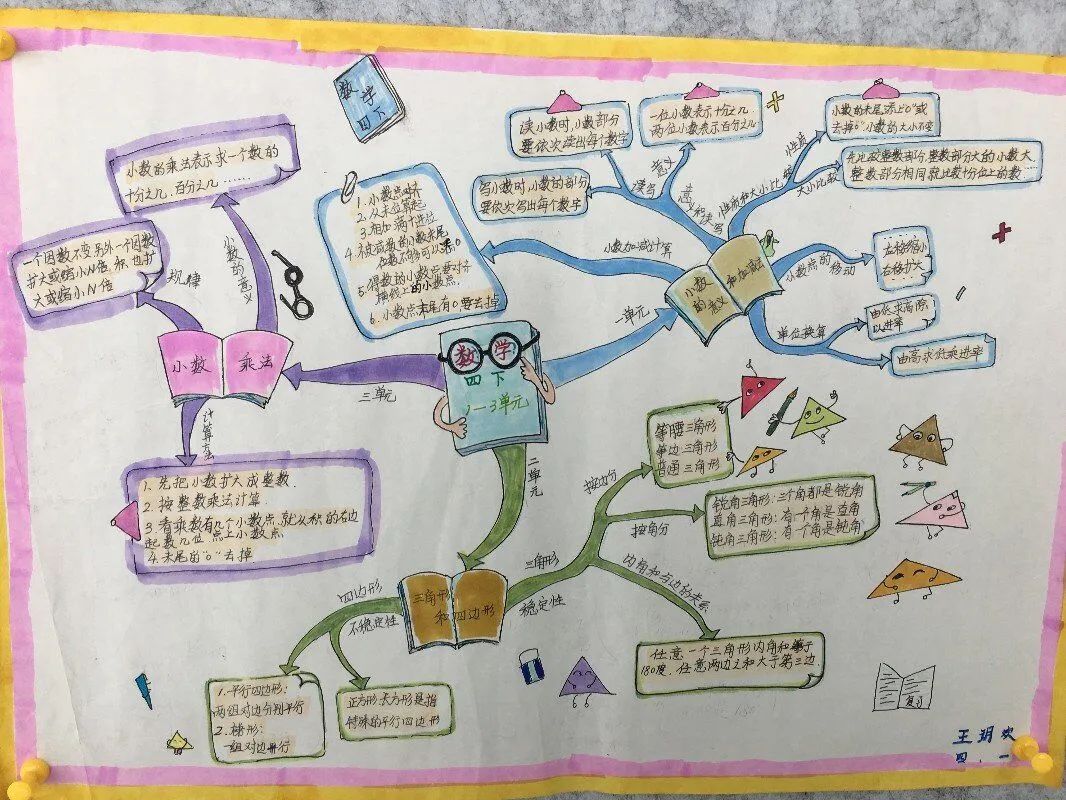 数学
四下
读小数时,小数部分
要依次读出每个数字
一位小数表示十分之几
两位小数表示百分之几
小数的末尾添上“0”或
去掉“0”小数的大小不变
先比较整数部分,整数部分大的小数大
整数部分相同就比较十分位上的数
写小数时,小数的部分
要依次写出每个数字
读写
意义
意义和读写
性质和大小比较
性质
大小比较
小数的乘法表示求一个数的
十分之几,百分之几……
一个因数不变,另外一个因数
扩大或缩小N倍,积也扩
大或缩小N倍
规律
小数的意义
1.小数点对齐
2.从末位算起
3.相加满十进位
4.被减数的小数末尾
位数不够可以添0
5.得数的小数点要对齐
横线上的小数点
6.小数点末尾有0,要去掉
小数加减计算
小数的意义
和加减法
小数点的移动
左移缩小
右移扩大
单位换算
由低求高除
以进率
由高求低乘进率
一单元
小数 乘法
三单元
数学
四下
1-3单元
计算方法
1.先把小数扩大成整数.
2.按整数乘法计算.
3.看乘数有几个小数点,就从积的右边
起数几位,点上小数点
4.末尾的“0”去掉.
二单元
按边分
等腰三角形
等边三角形
普通三角形
按角分
锐角三角形:三个角都是锐角
直角三角形:有一个角是直角
钝角三角形:有一个角是钝角
三角形
稳定性
内角和与边的关系
任意一个三角形内角和等于
180度.任意两边之和大于第三边
三角形
和四边形
四边形
不稳定性
1.平行四边形:
两组对边分别平行
2.梯形:
一组对边平行
正方形.长方形是指
特殊的平行四边形
复习
四.一